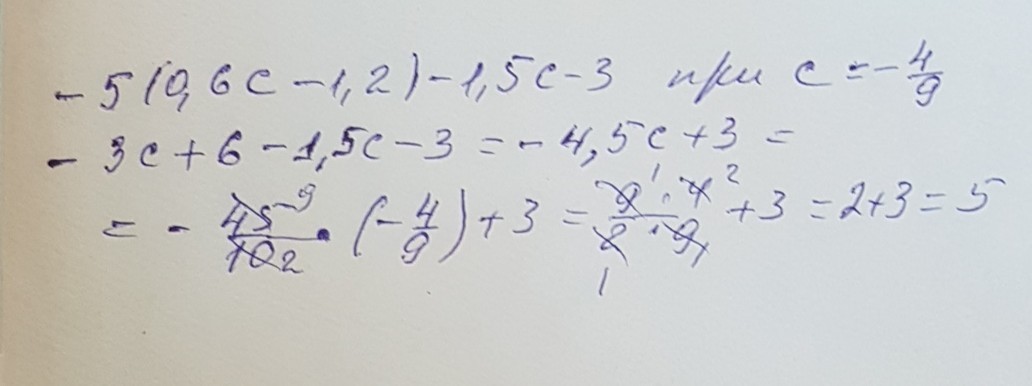 - 5(0,6c - 1,2) - 1,5c - 3 при c = - 4/9
- 3c + 6 - 1,5c - 3 = - 4,5c + 3 =
= - 45 9/10 2 · (- 4/9) + 3 = 9 1 · 4 2/2 1 · 9 1 + 3 = 2 + 3 = 5